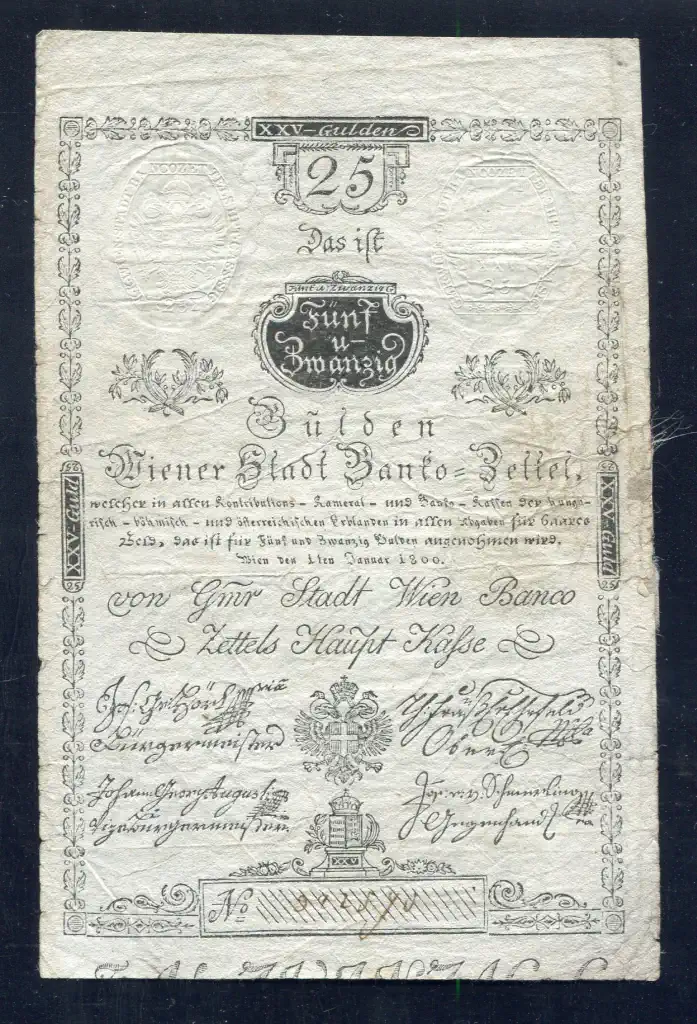 XXV-Gulden
25
Das ist
Fünf u. Zwanzig G
Fünf
u-
Zwanzig
Gulden
Wiener Stadt Banko-Zettel,
welcher in allen Kontributions- Kameral- und Banko-Kassen der hunga-
risch-böhmisch- und österreichischen Erblanden in allen Abgaben für baares
Geld, das ist für Fünf und Zwanzig Gulden angenohmen wird.
Wien den 1ten Januar 1800.
XXV-Guld
25
XXV-Guld
25
von Gmr Stadt Wien Banco
Zettels Haupt Kasse
Bürgermeister
Johann Georg August
Vizebürgermeister
v. Schmerling
XXV
No